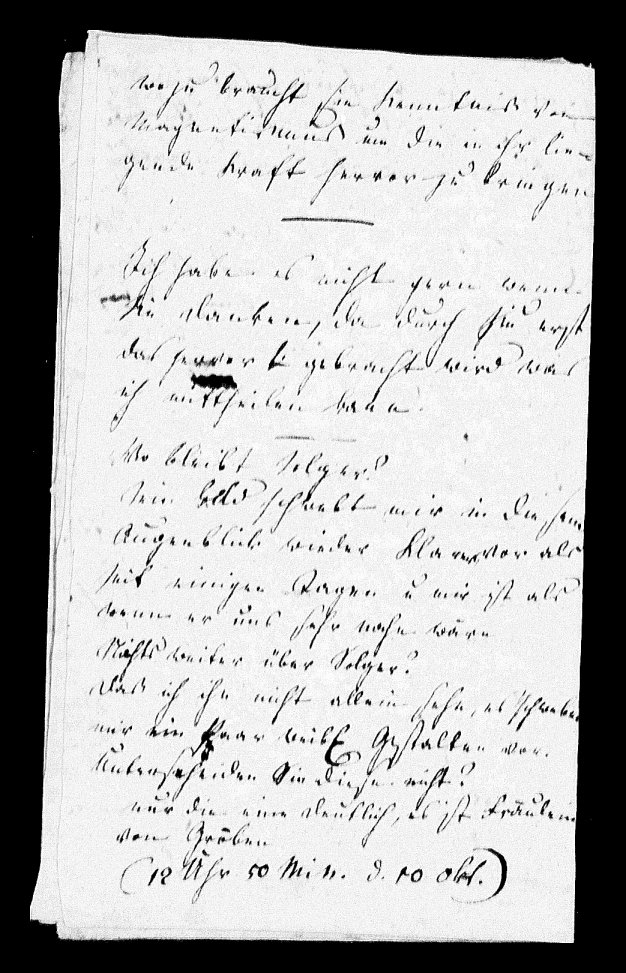 wozu braucht sie Kenntniß von
Magnetismus um die in ihr lie-
gende Kraft hervor zu bringen
Ich habe es nicht gern wenn
Sie danken, da durch Sie erst
das hervor gebracht wird was
ich mittheilen kann.
Wo bleibt Solger?
Sein Bild schwebt mir in diesem
Augenblick wieder klarer vor als
seit einigen Tagen u mir ist als
wenn er uns sehr nahe wäre
Nichts weiter über Solger?
Daß ich ihn nicht allein sehe, es schweben
mir ein Paar weibl Gestalten vor.
Unterscheiden Sie diese nicht?
nur die eine deutlich, es ist Fräulein
von Gröben
(12 Uhr 50 Min. d. 10 Okt.)